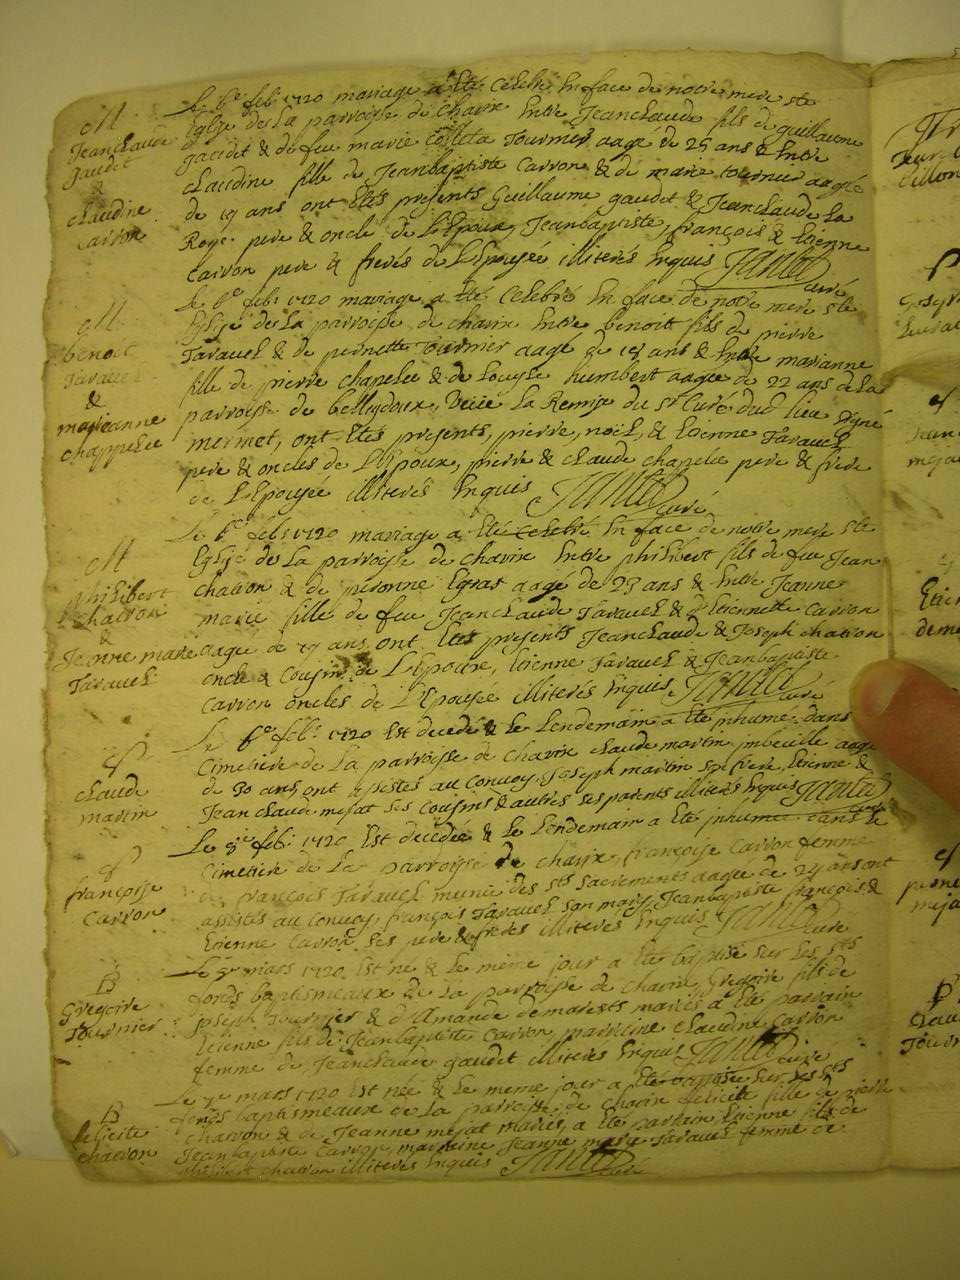 M
JeanClaude
gaudet
&
claudine
carron
Le 6e feb: 1720 mariage a Eté Celebré En face de notre mere ste
Eglise de La parroisse de Charix Entre JeanClaude fils de guillaume
gaudet & de feu marie Tournier aagé de 25 ans & Entre
claudine fille de Jeanbaptiste Carron & de marie tournier aagée
de 19 ans ont Etés presents Guillaume gaudet & JeanClaude La
Roye pere & oncle de L'Epoux, Jeanbaptiste, françois & Etienne
Carron pere & freres de L'Epousée illiterés Enquis
curé
M
benoit
Taravel
&
marieanne
chappelée
Le 6e feb: 1720 mariage a Eté Celebré En face de notre mere ste
Eglise de La parroisse de charix Entre benoit fils de pierre
Taravel & de pernette Tournier aagé de 18 ans & Entre marianne
fille de pierre chapelée & de Louyse humbert aagée de 22 ans de La
parroisse de belleydoux, Veüe La Remise du sr Curé dud Lieu signé
mermet, ont Etés presents, pierre, noël, & Etienne Taravel
pere & oncles de L'Epoux, pierre & claude chapelée pere & frere
de L'Epousée illiterés Enquis
curé
M
philibert
chatron
&
Jeanne marie
Taravel
Le 6e feb: 1720 mariage a Eté Celebré En face de notre mere ste
Eglise de La parroisse de charix Entre philibert fils de feu Jean
chatron & de peronne aagé de 23 ans & Entre Jeanne
marie fille de feu JeanClaude Taravel & d'Etiennette Carron
aagée de 19 ans, ont Etés presents JeanClaude & Joseph chatron
oncle & Cousin de L'Epoux, Etienne Taravel & Jeanbaptiste
Carron oncles de L'Epousée illiterés Enquis
curé
S
claude
martin
Le 6e feb: 1720 Est decedé & Le Lendemain a Eté inhumé dans
Cimetiere de La parroisse de Charix claude martin imbecille aagé
de 30 ans, ont assistés au Convoy Joseph martin son frere, Etienne &
Jean claude mejat ses Cousins & autres ses parents illiterés Enquis
curé
S
françoise
Carron
Le 8e feb: 1720 Est decedée & Le Lendemain a Eté inhumée dans Le
Cimetiere de La parroisse de charix françoise Carron femme
de françois Taravel munie des sts sacrements aagée de 24 ans ont
assistés au Convoy françois Taravel son mary, Jeanbaptiste françois &
Etienne Carron ses pere & freres illiterés Enquis
curé
B
Gregoire
Tournier
Le 5e mars 1720 Est né & Le même jour a Eté baptisé sur Les sts
fonds baptismeaux de La parroisse de charix Gregoire fils de
joseph Tournier & d'Amande demarests mariés a Eté parrain
Etienne fils de Jeanbaptiste Carron marreine claudine Carron
femme de JeanClaude gaudet illiterés Enquis
curé
B
felicite
chatron
Le 7e mars 1720 Est née & Le même jour a Eté baptisée sur Les sts
fonds baptismeaux de La parroisse de Charix felicité fille de pierre
chatron & de Jeanne mejat mariés, a Eté parrain Etienne fils de
Jeanbaptiste Carron marreine Jeanne marie Taravel femme de
philibert chatron illiterés Enquis
curé